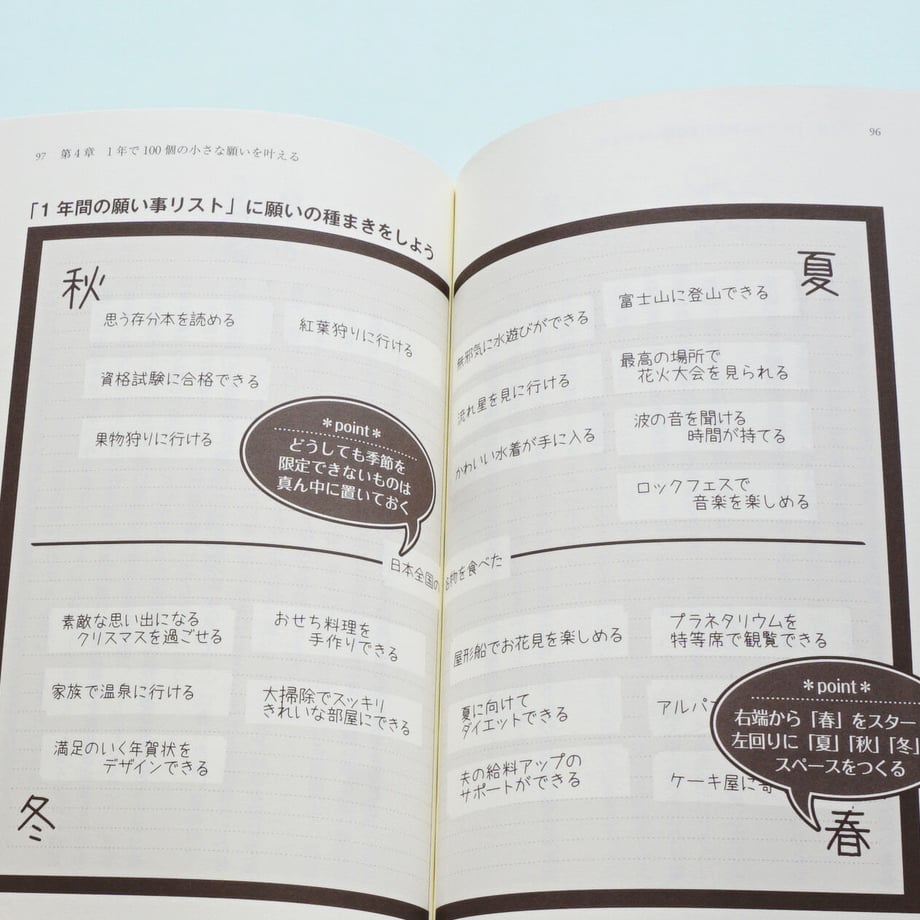 97 第4章 1年で100個の小さな願いを叶える
「1年間の願い事リスト」に願いの種まきをしよう
秋
思う存分本を読める
紅葉狩りに行ける
資格試験に合格できる
果物狩りに行ける
*point*
どうしても季節を
限定できないものは
真ん中に置いておく
96
夏
富士山に登山できる
無邪気に水遊びができる
最高の場所で
花火大会を見られる
流れ星を見に行ける
波の音を聞ける
時間が持てる
かわいい水着が手に入る
ロックフェスで
音楽を楽しめる
日本全国の名物を食べた
素敵な思い出になる
クリスマスを過ごせる
おせち料理を
手作りできる
家族で温泉に行ける
大掃除でスッキリ
きれいな部屋にできる
満足のいく年賀状を
デザインできる
冬
屋形船でお花見を楽しめる
プラネタリウムを
特等席で観覧できる
夏に向けて
ダイエットできる
アルパ
夫の給料アップの
サポートができる
ケーキ屋に
*point*
右端から「春」をスター
左回りに「夏」「秋」「冬」
スペースをつくる
春